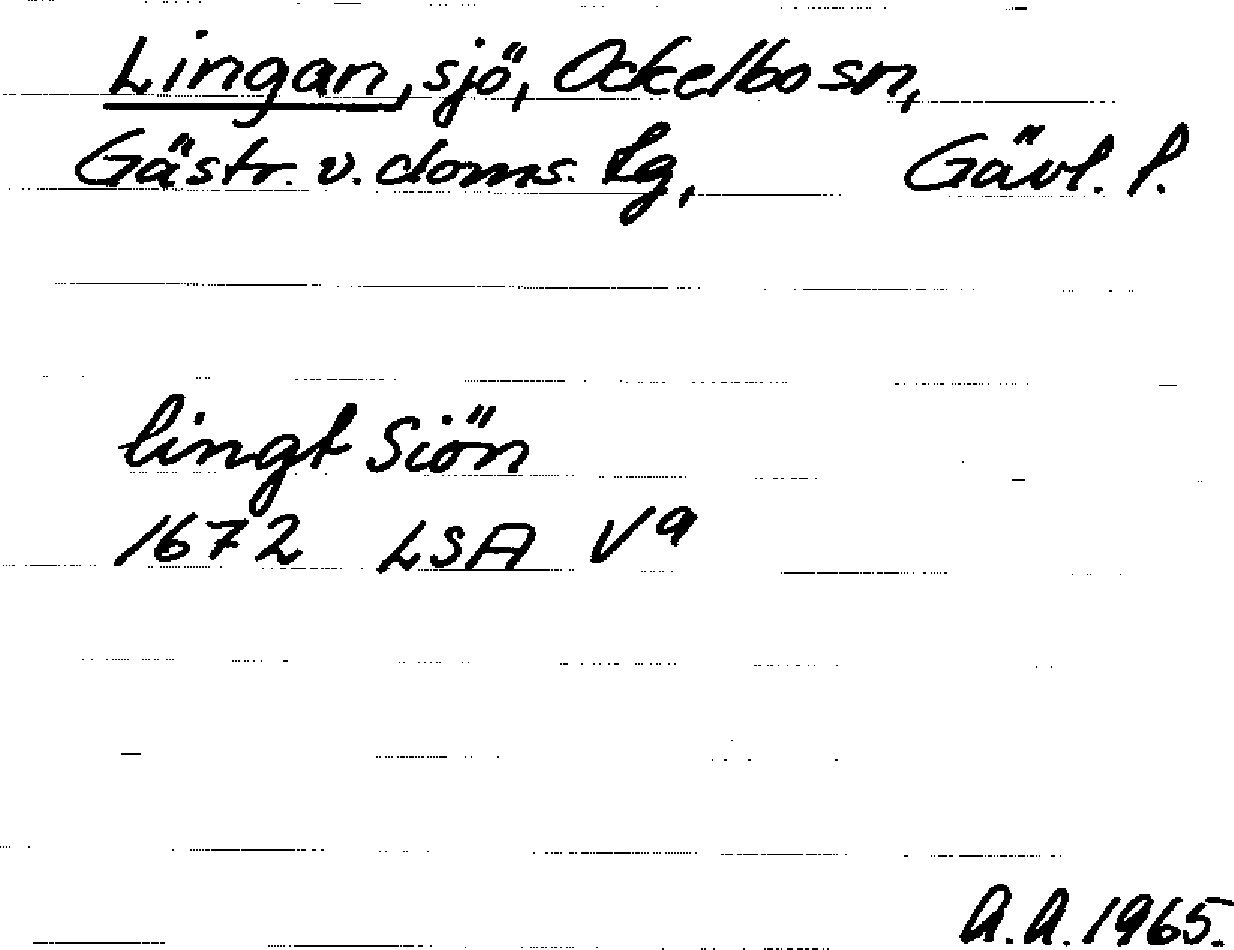 Lingan, sjö, Ockelbo sn,
Gästr. v. doms. lg, Gävl. l.
lingt Siön
1672 LSA Va
A.A. 1965.